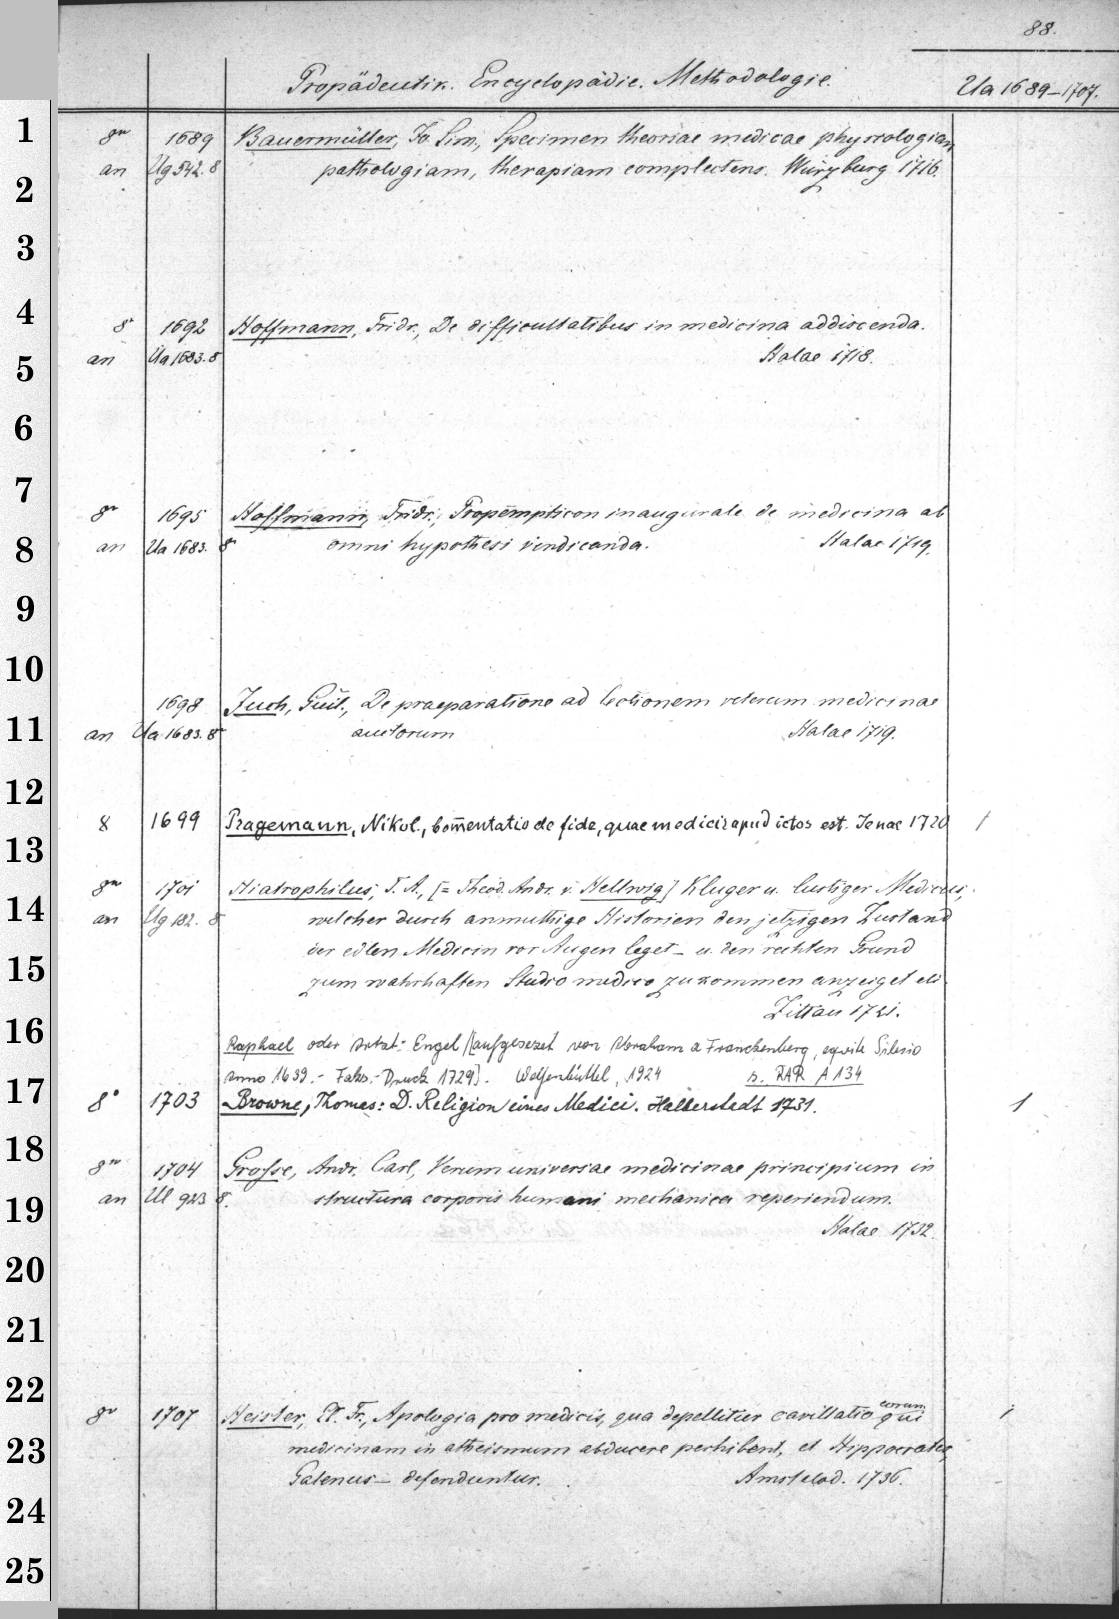 88.
Propädeutik. Encyclopädie. Methodologie. Ua 1689-1707.
1
8° 1689 Bauermüller, Jo. Sim., Specimen theoriae medicae physiologiam
an Ug 542. 8 pathologiam, therapiam complectens. Würzburg 1716.
2
3
4
8° 1692 Hoffmann, Fridr., De difficultatibus in medicina addiscenda.
an Ua 1683. 8 Halae 1718.
5
6
7
8° 1695 Hoffmann, Fridr., Propempticon inaugurale de medicina ab
an Ua 1683. 8° omni hypothesi vindicanda. Halae 1719.
8
9
10
1698 Juch, Guil., De praeparatione ad lectionem veterum medicinae
an Ua 1683. 8° auctorum Halae 1719.
11
12
8 1699 Pragemann, Nikol., Com̄entatio de fide, quae medicis apud ictos est. Jenae 1720 1
13
8° 1701 Hiatrophilus, T. A., [= Theod. Andr. v. Hellwig] Kluger u. lustiger Medicus,
14
an Ug 182. 8 welcher durch anmuthige Historien den jetzigen Zustand
der edlen Medicin vor Augen leget - u. den rechten Grund
15
zum wahrhaften Studio medico zu kommen anzeiget etc.
Zittau 1721.
16
Raphael oder Artzt-Engel [aufgesezet von Abraham a Franckenberg, equite Silesio
anno 1639. - Faks.-Druck 1729]. Wolfenbüttel, 1924 s. RAR A 134
17
8° 1703 Browne, Thomas: D. Religion eines Medici. Halberstadt 1731. 1
18
8° 1704 Grosse, Andr. Carl, Verum universae medicinae principium in
an Ul 923 8. structura corporis humani mechanica reperiendum.
19
Halae 1732.
20
21
22
8° 1707 Heister, El. Fr., Apologia pro medicis, qua depellitur cavillatio eorum qui 1
23
medicinam in atheismum abducere perhibent, et Hippocrates,
Galenus - defenduntur. Amstelod. 1736.
24
25